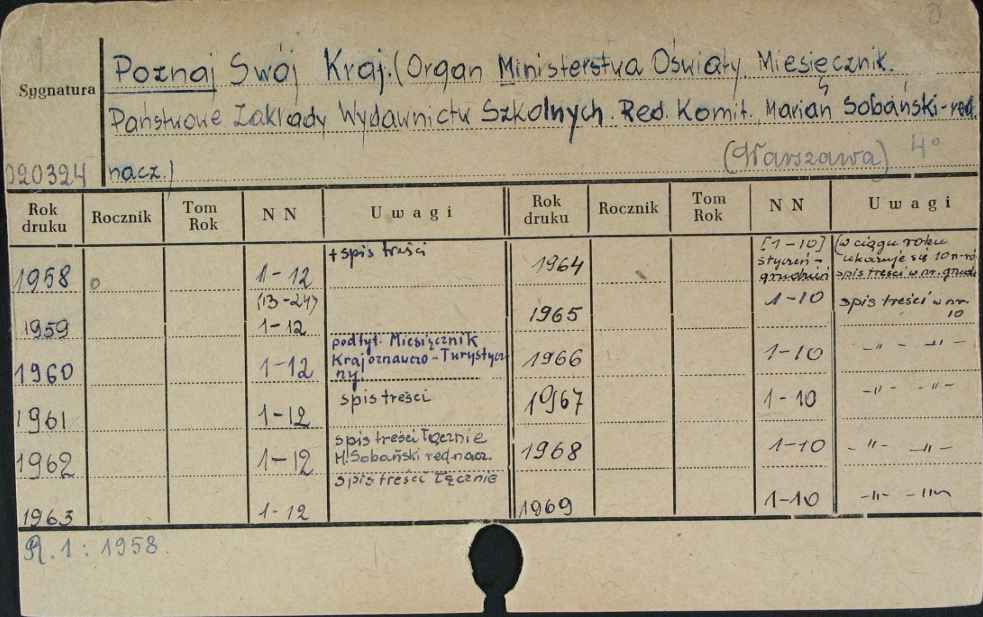 Poznaj Swój Kraj. (Organ Ministerstwa Oświaty. Miesięcznik.
Sygnatura
Państwowe Zakłady Wydawnictw Szkolnych. Red. Komit. Marian Sobański - red.
(Warszawa) 4°
020324 nacz.)
Rok druku Rocznik Tom Rok NN Uwagi Rok druku Rocznik Tom Rok NN Uwagi
1958 1-12 + spis treści
1964 [1-10] styczeń - grudzień (w ciągu roku ukazuje się 10 n-rów
spis treści w nr. grud.
1959 (13-24) 1-12
1965 1-10 spis treści w nr. 10
1960 1-12 podtyt. Miesięcznik Krajoznawczo-Turystyczny.
1966 1-10 -"- -"-
1961 1-12 spis treści
1967 1-10 -"- -"-
1962 1-12 spis treści łącznie
M. Sobański red. nacz.
1968 1-10 -"- -"-
1963 1-12 spis treści łącznie
1969 1-10 -"- -"-
R. 1: 1958.